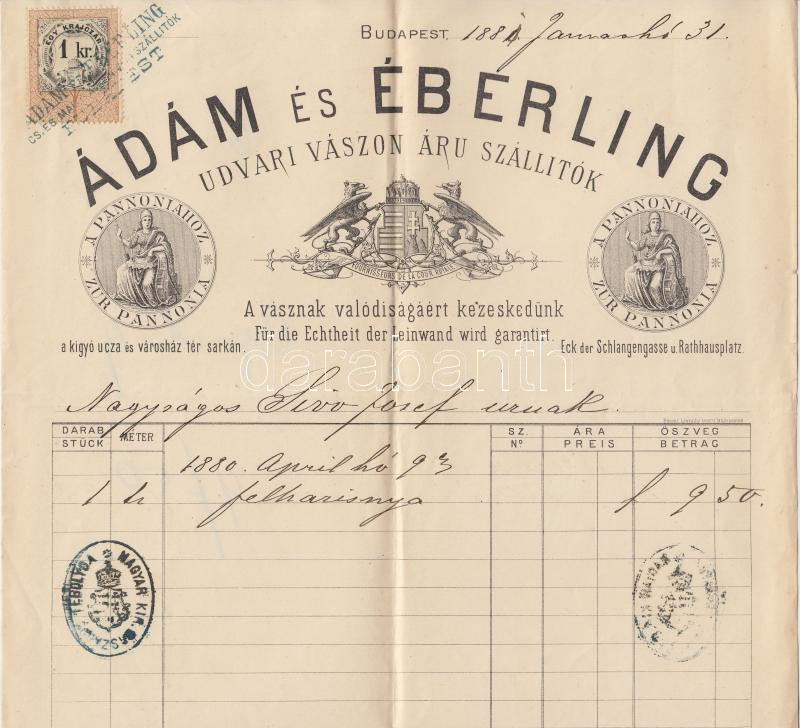 BUDAPEST, 1881 Januarhó 31.
EGY KRAJCZÁR
1 kr.
ÁDÁM ÉS ÉBERLING
UDVARI VÁSZON ÁRU SZÁLLITÓK
A PANNONIÁHOZ
ZUR PANNONIA
FOURNISSEURS DE LA COUR ROYALE
A PANNONIÁHOZ
ZUR PANNONIA
A vásznak valódiságáért kezeskedünk
Für die Echtheit der Leinwand wird garantirt.
a kígyó ucza és városház tér sarkán.
Eck der Schlangengasse u. Rathhausplatz.
darabanth
Nagyságos Josef urnak.
DARAB STÜCK METER SZ. Nº ÁRA PREIS ÖSZVEG BETRAG
1880. April hó 9
1 felharisnya f 9 50.
MAGYAR KIR. TÉBOLYDA